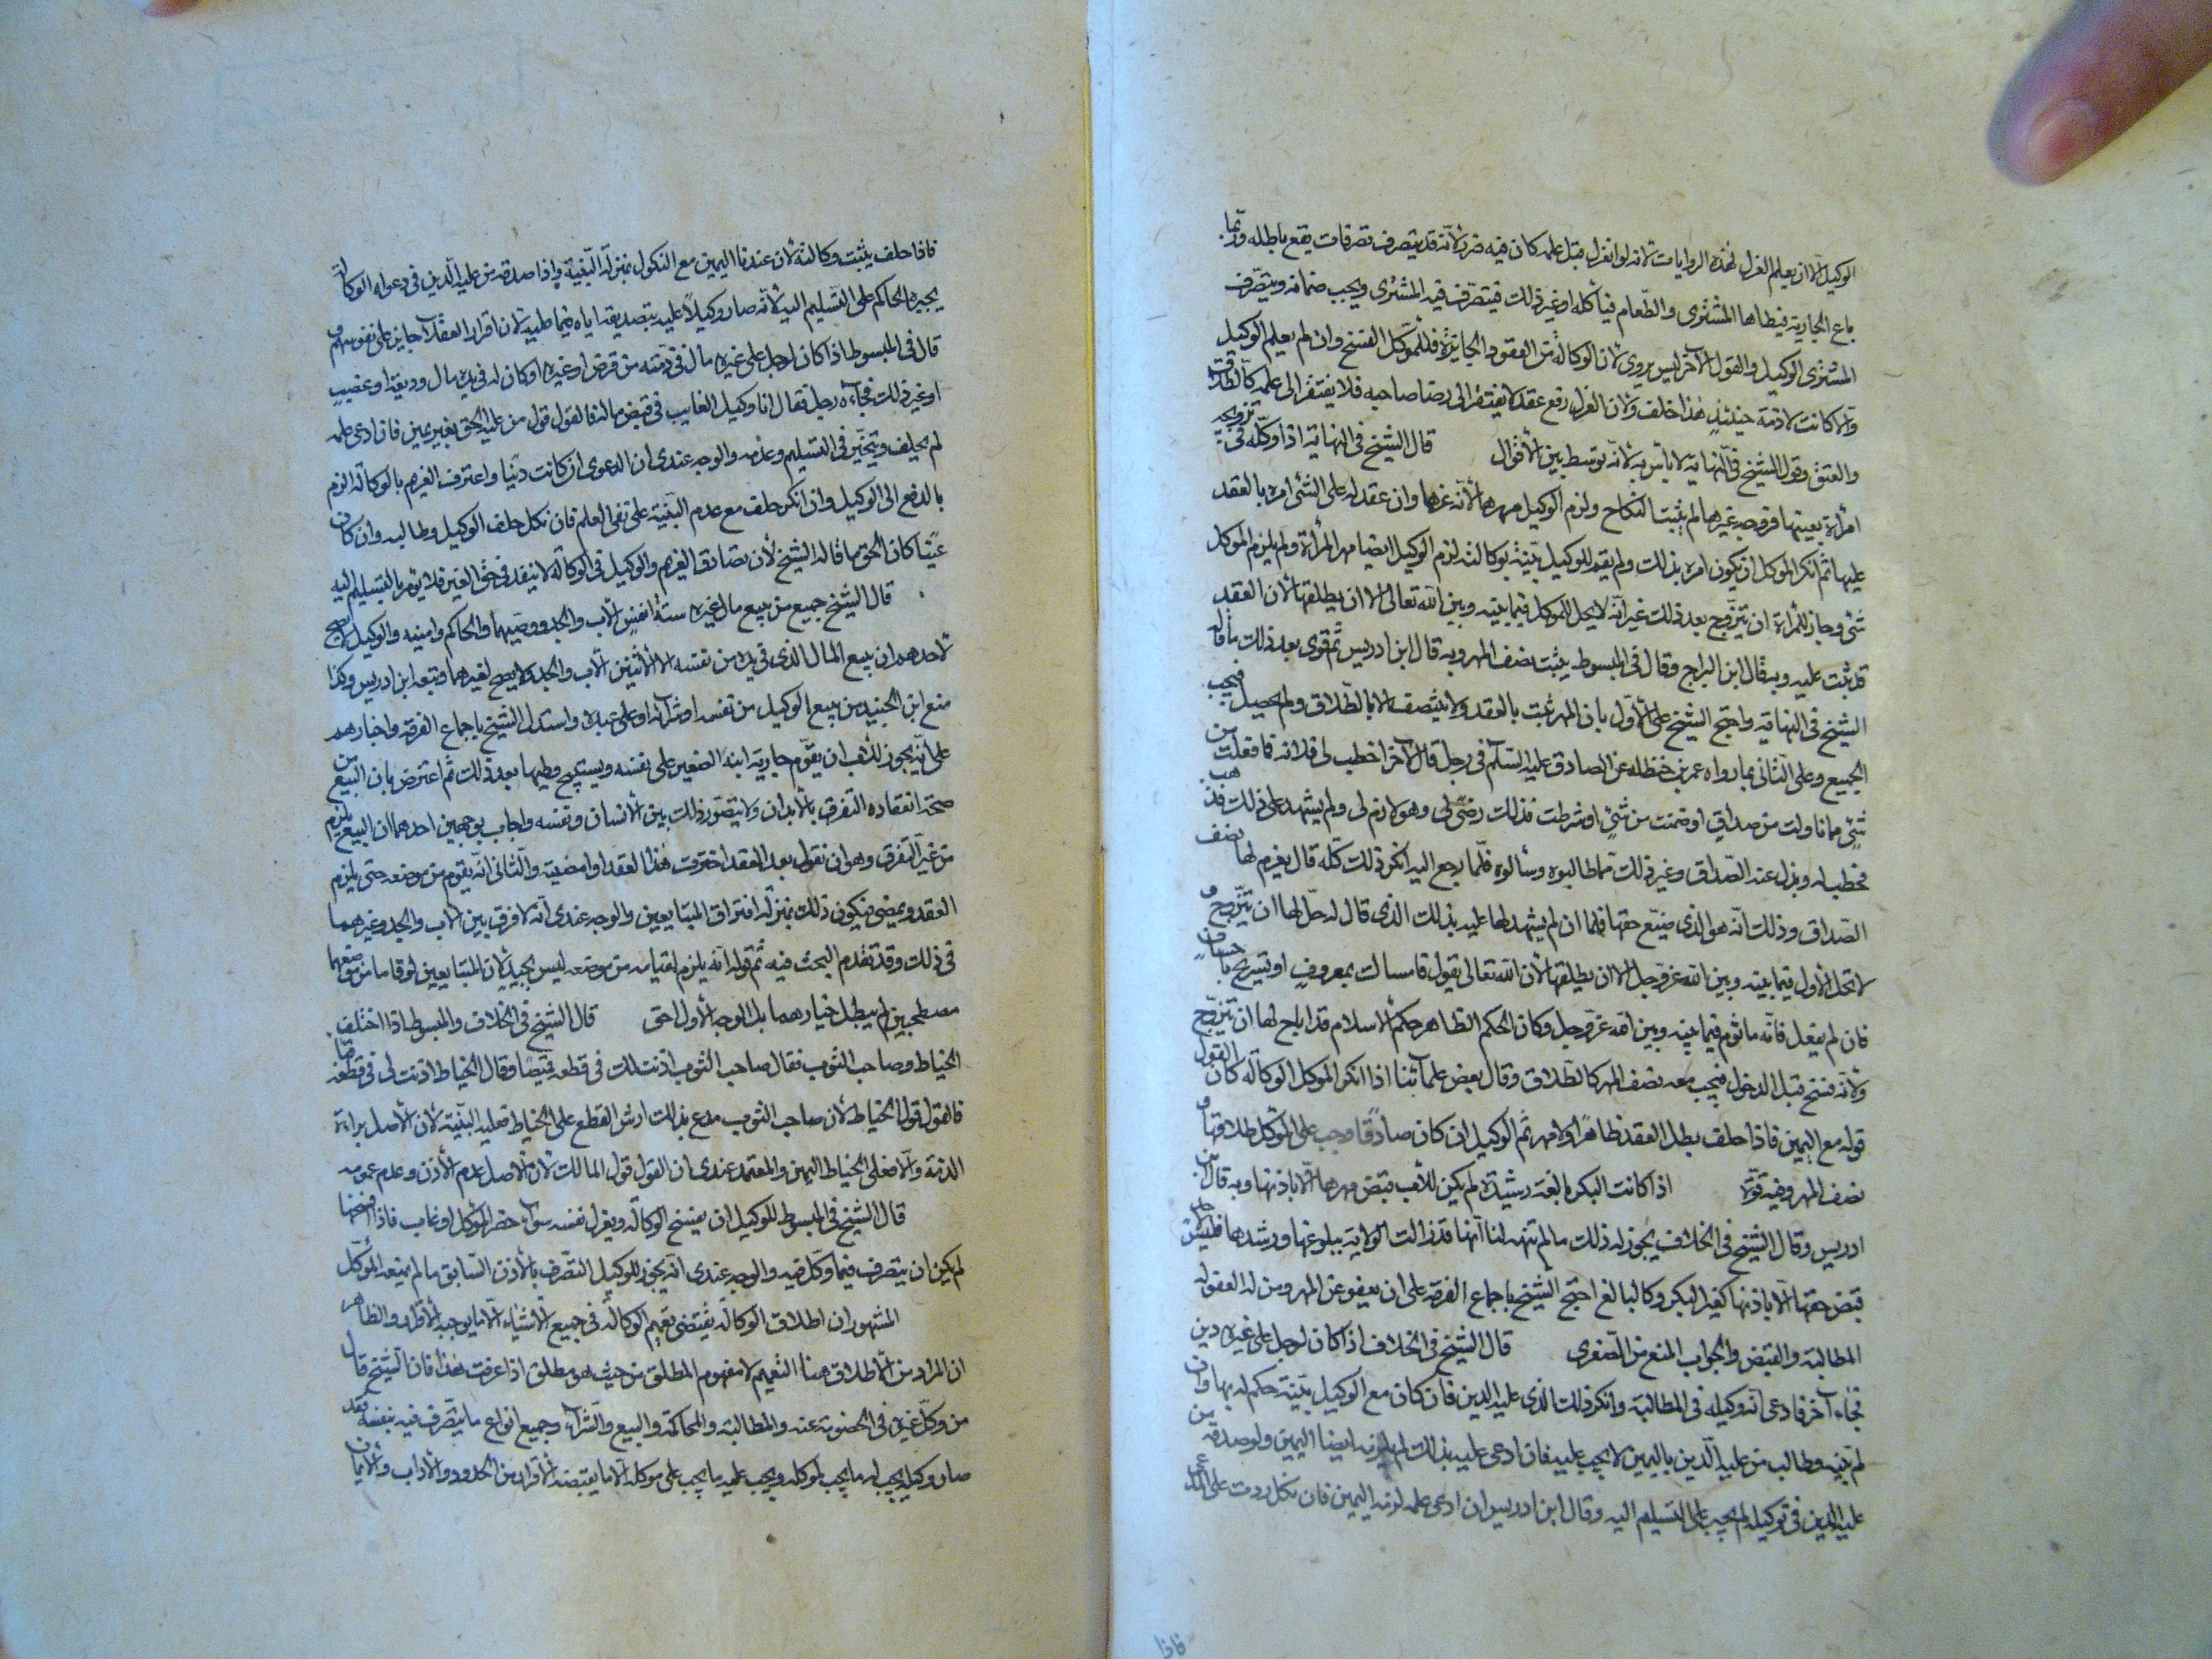 الوكيل الا ان يعلم العزل لهذه الروايات لانه لو انعزل قبل علمه كان فيه ضرر لانه قد يتصرف تصرفات يقع باطله وربما
باع الجارية فيطاها المشتري والطعام فيأكله او غير ذلك فيتصرف فيه المشتري ويجب ضمانه ويتصرف
المشتري الوكيل والقول الاخر ليس بروي لان الوكالة من العقود الجايزة فللموكل الفسخ وان لم يعلم الوكيل
والا كانت لازمة حينئذ هذا خلف ولان العزل رفع عقد لا يفتقر الى رضا صاحبه فلا يفتقر الى علمه كالطلاق
والعتق وقول الشيخ في النهاية لا بأس به لانه توسط بين الاقوال قال الشيخ في النهاية اذا وكله في تزويجه
امرأة بعينها فزوجه غيرها لم يثبت النكاح ولزم الوكيل مهرها لانه غرها وان عقد له على التي امره بالعقد
عليها ثم انكر الموكل ان يكون امره بذلك ولم يقم للوكيل بينة بوكالته لزم الوكيل ايضا مهر المرأة ولم يلزم الموكل
شئ وجاز للمرأة ان تتزوج بعد ذلك غير انه لا يحل للموكل فيما بينه وبين الله تعالى الا ان يطلقها لان العقد
قد ثبت عليه وبه قال ابن البراج وقال في المبسوط يثبت نصف المهر وبه قال ابن ادريس ثم قوى بعد ذلك ما قاله
الشيخ في النهاية واحتج الشيخ على الاول بان المهر ثبت بالعقد ولا يتنصف الا بالطلاق ولم يحصل فيجب
الجميع وعلى الثاني بما رواه عمر بن حنظله عن الصادق عليه السلم في رجل قال لاخر اخطب لي فلانه فما فعلت من
شئ مما قاولت من صداق او ضمنت من شئ او شرطت فذلك رضي لي وهو لازم لي ولم يشهد على ذلك فذهب
فخطب له وبذل عنه الصداق وغير ذلك مما طالبوه وسألوه فلما رجع اليه انكر ذلك كله قال يغرم لها نصف
الصداق وذلك انه هو الذي ضيع حقها فلما ان لم يشهد لها عليه بذلك الذي قال له حل لها ان تتزوج و
لا تحل للاول فيما بينه وبين الله عز وجل الا ان يطلقها لان الله تعالى يقول فامساك بمعروف او تسريح باحسان
فان لم يفعل فانه ماثوم فيما بينه وبين الله عز وجل وكان الحكم الظاهر حكم الاسلام قد اباح لها ان تتزوج
ولانه فسخ قبل الدخول فيجب معه نصف المهر كالطلاق وقال بعض علمائنا اذا انكر الموكل الوكالة كان القول
قوله مع اليمين فاذا حلف بطل العقد ظاهرا ولا مهر ثم الوكيل ان كان صادقا وجب على الموكل طلاقها و
نصف المهر وفيه قوة اذا كانت البكر بالغة رشيدة لم يكن للاب قبض مهرها الا باذنها وبه قال ابن
ادريس وقال الشيخ في الخلاف يجوز له ذلك ما لم تنهه لنا انها قد زالت الولاية ببلوغها ورشدها فليس له
قبض حقها الا باذنها كغير البكر وكالبالغ احتج الشيخ باجماع الفرقة على ان يعفو عن المهر ومن له العفو له
المطالبة والقبض والجواب المنع من الصغرى قال الشيخ في الخلاف اذا كان لرجل على غيره دين
فجاء اخر فادعى انه وكيله في المطالبة وانكر ذلك الذي عليه الدين فان كان مع الوكيل بينة حكم له بها وان
لم بينه وطالب من عليه الدين باليمين لا يجب عليه فان ادعى عليه بذلك لم يلزمه ايضا اليمين ولو صدقه من
عليه الدين في توكيله لم يجب على التسليم اليه وقال ابن ادريس ان ادعى علمه لزمه اليمين فان نكل ردت على المدعي
فاذا
فاذا حلف يثبت وكالته لان عندنا اليمين مع النكول بمنزلة البينة واذا صدقه من عليه الدين في دعواه الوكالة
يجبره الحاكم على التسليم اليه لانه صار وكيلا عليه بتصديقه اياه فيما طلبه لان اقرار العقلاء جايز على نفوسهم و
قال في المبسوط اذا كان لرجل على غيره مال في ذمته من قرض او غيره او كان له في يده مال وديعة او غصب
او غير ذلك فجاءه رجل فقال انا وكيل الغايب في قبض ماله فالقول قول من عليه الحق بغير يمين فان ادعى علمه
لم يحلف ويتخير في التسليم وعدمه والوجه عندي ان الدعوى ان كانت دينا واعترف الغريم بالوكالة الزم
بالدفع الى الوكيل وان انكر حلف مع عدم البينة على نفي العلم فان نكل حلف الوكيل وطالبه وان كان
عينا كان الحق ما قاله الشيخ لان تصادق الغريم والوكيل في الوكالة لا ينفذ في حق الغير فلا يؤمر بالتسليم اليه
قال الشيخ جميع من يبيع مال غيره ستة انفس الاب والجد ووصيهما والحاكم وامينه والوكيل لا يصح
لاحدهم ان يبيع المال الذي في يده من نفسه الا لاثنين الاب والجد ولا يصح لغيرهما وتبعه ابن ادريس وكذا
منع ابن الجنيد من بيع الوكيل من نفسه او شرائه او على عبده واستدل الشيخ باجماع الفرقه واخبارهم
على انه يجوز للاب ان يقوم جارية ابنه الصغير على نفسه ويستبيح وطيها بعد ذلك ثم اعترض بان البيع من
صحة انعقاده التفرق بالابدان ولا يتصور ذلك بين الانسان ونفسه واجاب بوجهين احدهما ان البيع يلزم
من غير التفرق وهو ان نقول بعد العقد اخترت هذا العقد او امضيته والثاني انه يقوم من موضعه حتى يلزم
العقد ويمضي فيكون ذلك بمنزلة افتراق المتبايعين والوجه عندي انه لا فرق بين الاب والجد وغيرهما
في ذلك وقد تقدم البحث فيه ثم قوله انه يلزم لقيامه من موضعه ليس بجيد لان المتبايعين لو قاما من موضعهما
مصطحبين لم يبطل خيارهما بل الوجه الاول احق قال الشيخ في الخلاف والمبسوط اذا اختلف
الخياط وصاحب الثوب فقال صاحب الثوب اذنت لك في قطعه قميصا وقال الخياط اذنت لي في قطعه قبا
فالقول قول الخياط لان صاحب الثوب مدع بذلك ارش القطع على الخياط فعليه البينة لان الاصل براءة
الذمة والا فعلى الخياط اليمين والمعتمد عندي ان القول قول المالك لان الاصل عدم الاذن وعدم عمومه
قال الشيخ في المبسوط للوكيل ان يفسخ الوكالة ويعزل نفسه سواء حضر الموكل او غاب فاذا فسخها
لم يكن ان يتصرف فيما وكل فيه والوجه عندي انه يجوز للوكيل التصرف بالاذن السابق ما لم يمنعه الموكل
المشهور ان اطلاق الوكالة يقتضي تعميم الوكالة في جميع الاشياء الا ما يوجبه الاقرار والظاهر
ان المراد من الاطلاق هنا التعميم لا مفهوم المطلق من حيث هو مطلق اذا عرفت هذا فان الشيخ قال
من وكل غيره في الخصومة عنه والمطالبة والمحاكمة والبيع والشراء وجميع انواع ما يتصرف فيه بنفسه فقد
صار وكيله يجب له ما يجب لموكله ويجب عليه ما يجب على موكله الا ما يقتضيه الاقرار من الحدود والاداب والايمان